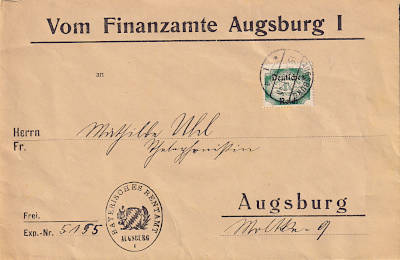 Vom Finanzamte Augsburg I
an
Deutsches
Reich
Herrn
Fr.
Mathilde Uhl
Telephonistin
Frei.
Exp.-Nr. 5195
BAYERISCHES RENTAMT
AUGSBURG
I
Augsburg
9